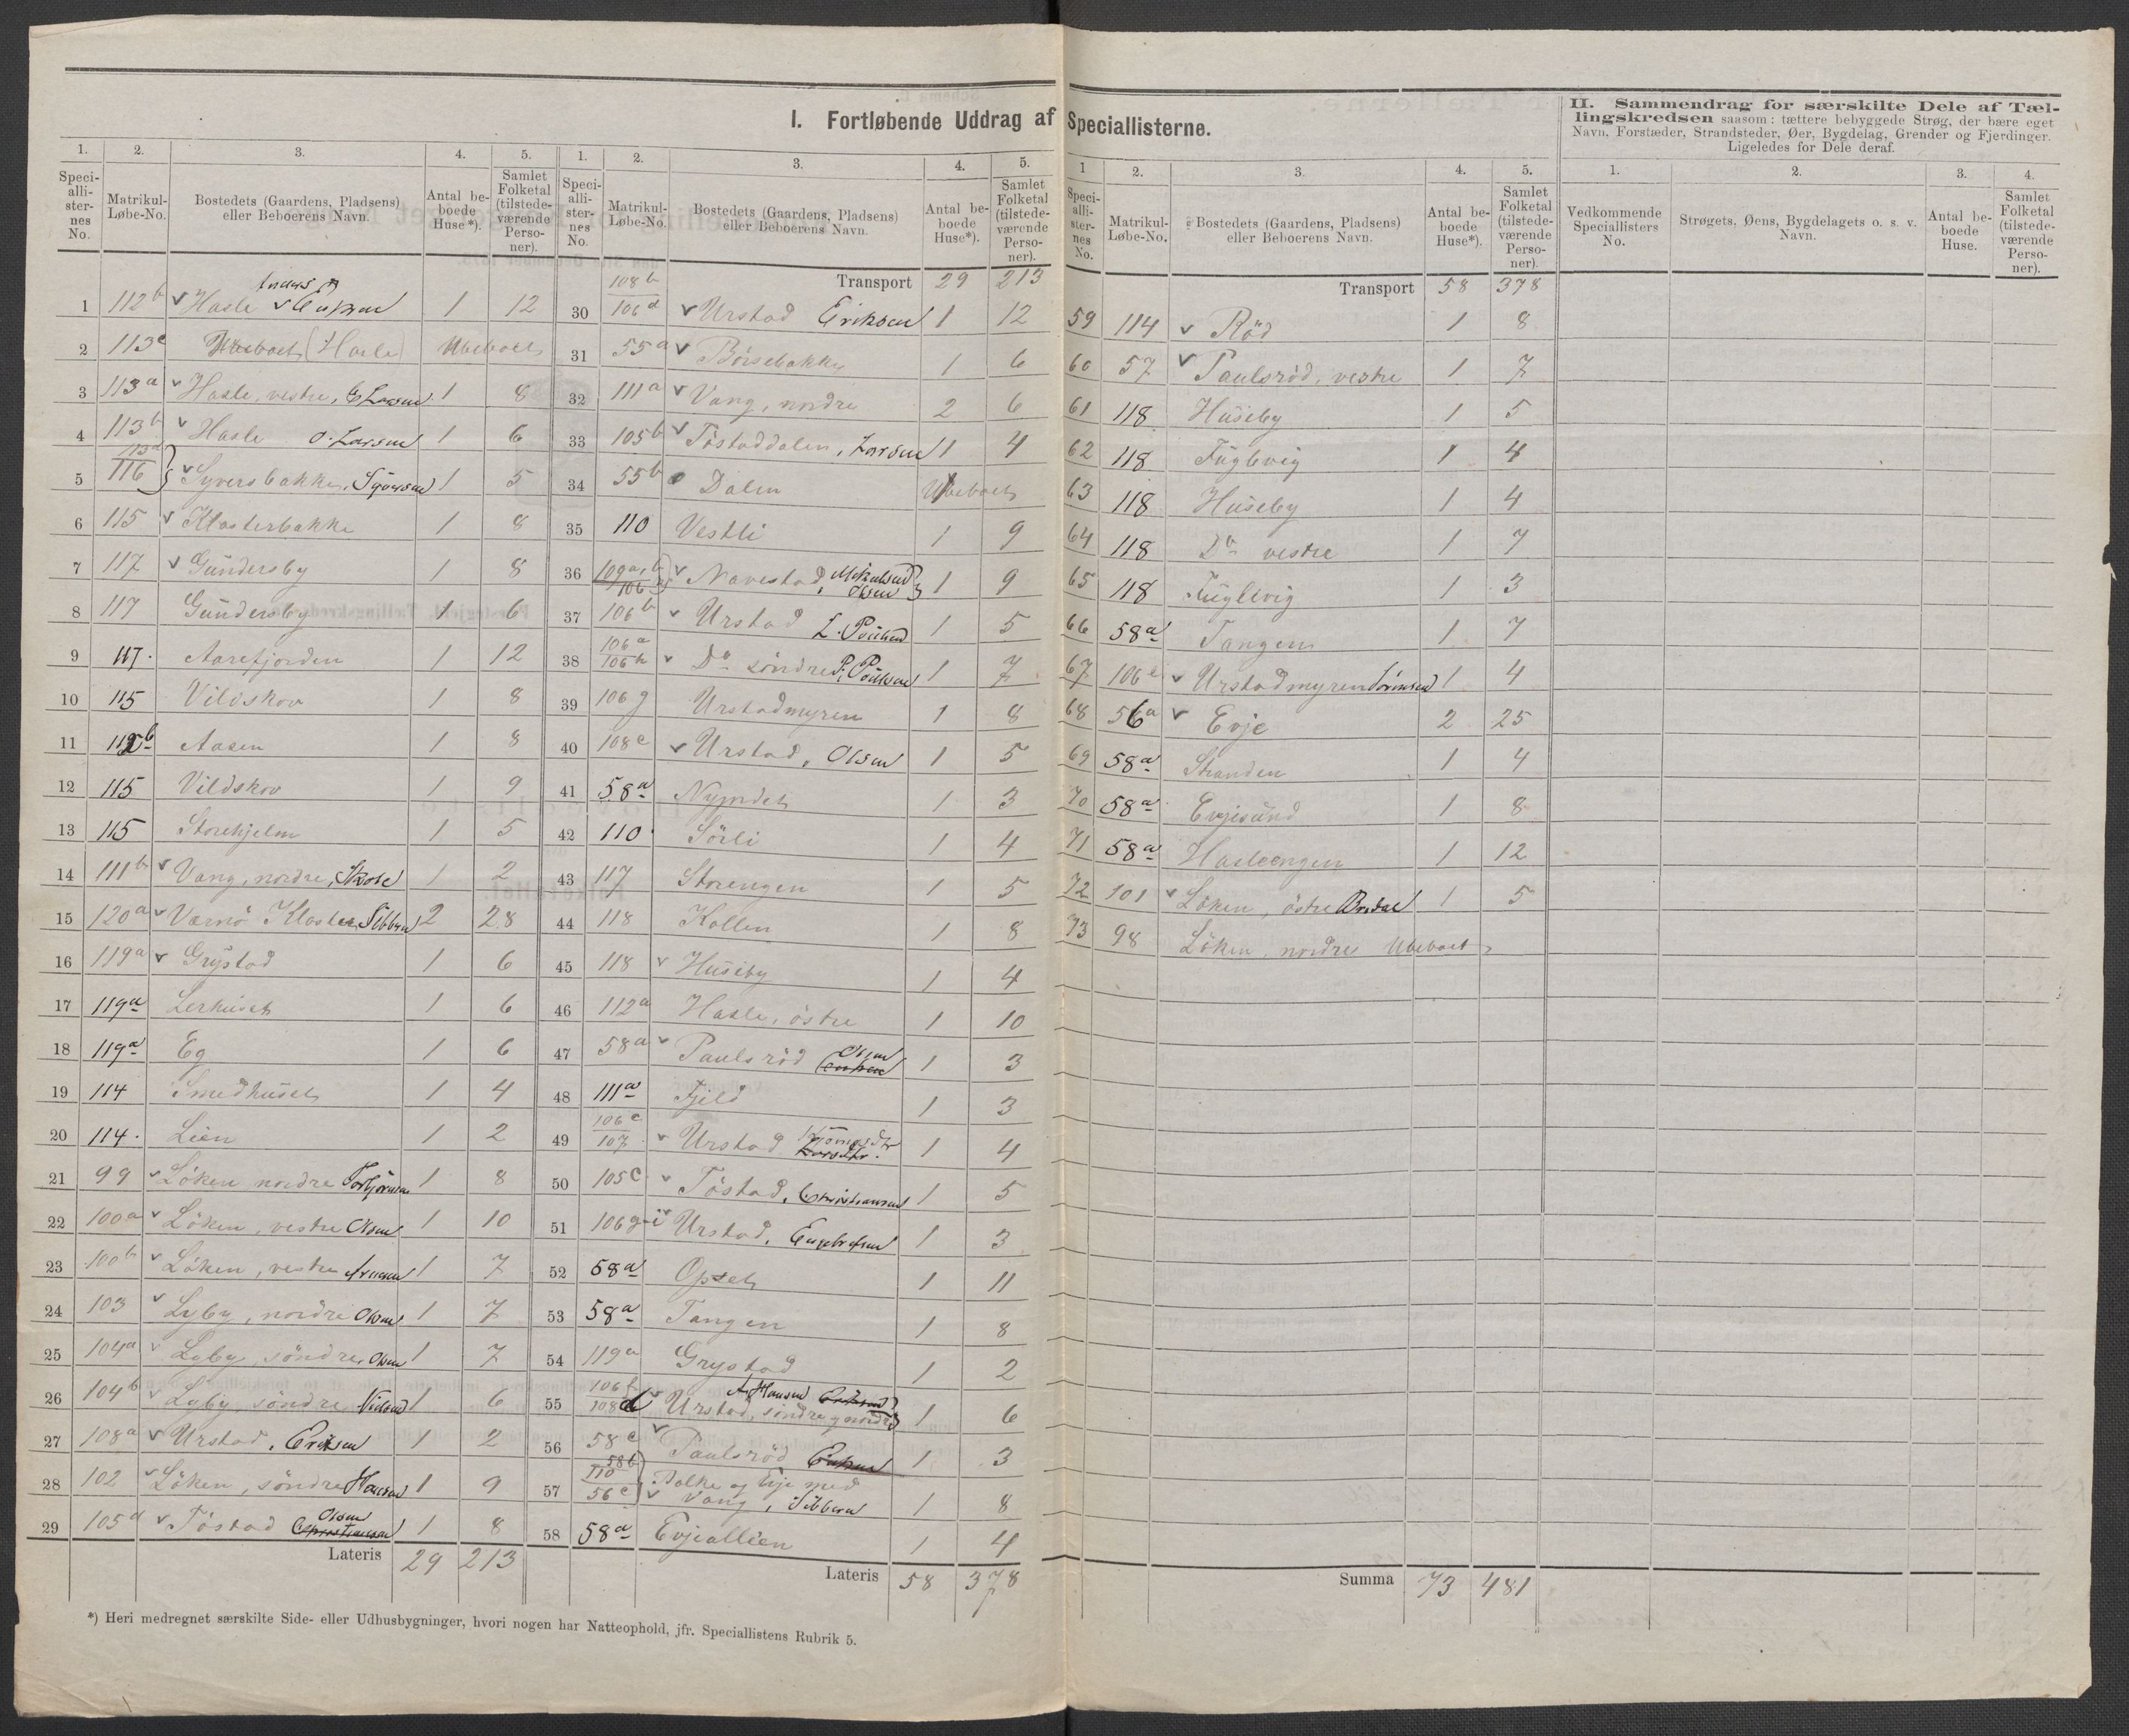 I. Fortløbende Uddrag af Speciallisterne.
II. Sammendrag for særskilte Dele af Tæl-
lingskredsen saasom: tættere bebyggede Strøg, der bære eget
Navn, Forstæder, Strandsteder, Øer, Bygdelag, Grender og Fjerdinger.
Ligeledes for Dele deraf.
1. 2. 3. 4. 5.
Speciallisternes No. Matrikul-Løbe-No. Bostedets (Gaardens, Pladsens) eller Beboerens Navn. Antal beboede Huse*). Samlet Folketal (tilstedeværende Personer).
1 112b Hasle 1 12
2 113c (Hasle) Ubeboet
3 113a Hasle, vestre, Larsen 1 8
4 113b Hasle O. Larsen 1 6
5 116 Syversbakke, Syversen 1 5
6 115 Klosterbakke 1 8
7 117 Gundersby 1 8
8 117 Gundersby 1 6
9 117. Aarefjorden 1 12
10 115 Vildskov 1 8
11 Aasen 1 8
12 115 Vildskov 1 9
13 115 Storehjelm 1 5
14 111b Vang, nordre, 1 2
15 120a Varnö Kloster, Sibbern 2 28
16 119a Grystad 1 6
17 119a Lerhuset 1 6
18 119a Eg 1 6
19 114 Smedhuset 1 4
20 114. Lien 1 2
21 99 Löken nordre Torbjörnsen 1 8
22 100a Löken, vestre Olsen 1 10
23 100b Löken, vestre Arnesen 1 7
24 103 Lyby, nordre Olsen 1 7
25 104a Lyby, söndre, Olsen 1 7
26 104b Lyby, söndre Nielsen 1 6
27 108a Urstad, Eriksen 1 2
28 102 Löken, söndre Hansen 1 9
29 105a Töstad Olsen Christiansen 1 8
Lateris 29 213
1. 2. 3. 4. 5.
Speciallisternes No. Matrikul-Løbe-No. Bostedets (Gaardens, Pladsens) eller Beboerens Navn. Antal beboede Huse*). Samlet Folketal (tilstedeværende Personer).
Transport 29 213
30 108b 106d Urstad Eriksen 1 12
31 55a Börsebakke 1 6
32 111a Vang, nordre 2 6
33 105b Töstaddalen, Larsen 1 4
34 55b Dalen Ubeboet
35 110 Vestli 1 9
36 109a,b 106 Navestad, Olsen 1 9
37 106b Urstad L. Poulsen 1 5
38 106a 106h Do söndre P. Poulsen 1 7
39 106g Urstadmyren 1 8
40 108c Urstad, Olsen 1 5
41 58a Nyjordet 1 3
42 110 Sörli 1 4
43 117 Storengen 1 5
44 118 Kollen 1 8
45 118 Huseby 1 4
46 112a Hasle, östre 1 10
47 58a Paulsröd Olsen 1 3
48 111a Fjeld 1 3
49 106c 107 Urstad 1 4
50 105c Töstad, Christiansen 1 5
51 106g-i Urstad, Engebretsen 1 3
52 58a Opset 1 11
53 58a Tangen 1 8
54 119a Grystad 1 2
55 106f 108d Urstad, söndre og nordre A. Hansen Eriksen 1 6
56 58c Paulsröd 1 3
57 58b 110 56c og Evje med Vang, Sibbern 1 8
58 58a Evjeallien 1 4
Lateris 58 378
1 2. 3. 4. 5.
Speciallisternes No. Matrikul-Løbe-No. Bostedets (Gaardens, Pladsens) eller Beboerens Navn. Antal beboede Huse*). Samlet Folketal (tilstedeværende Personer).
Transport 58 378
59 114 Röd 1 8
60 57 Paulsröd, vestre 1 7
61 118 Huseby 1 5
62 118 Fuglevig 1 4
63 118 Huseby 1 4
64 118 Do vestre 1 7
65 118 Fuglevig 1 3
66 58a Tangen 1 7
67 106e Urstadmyren 1 4
68 56a Evje 2 25
69 58a Stranden 1 4
70 58a Evjesund 1 8
71 58a Hasleengen 1 12
72 101 Löken, östre 1 5
73 98 Löken, nordre Ubeboet
Summa 73 481
1. 2. 3. 4.
Vedkommende Speciallisters No. Strøgets, Øens, Bygdelagets o. s. v. Navn. Antal beboede Huse. Samlet Folketal (tilstedeværende Personer).
*) Heri medregnet særskilte Side- eller Udhusbygninger, hvori nogen har Natteophold, jfr. Speciallistens Rubrik 5.